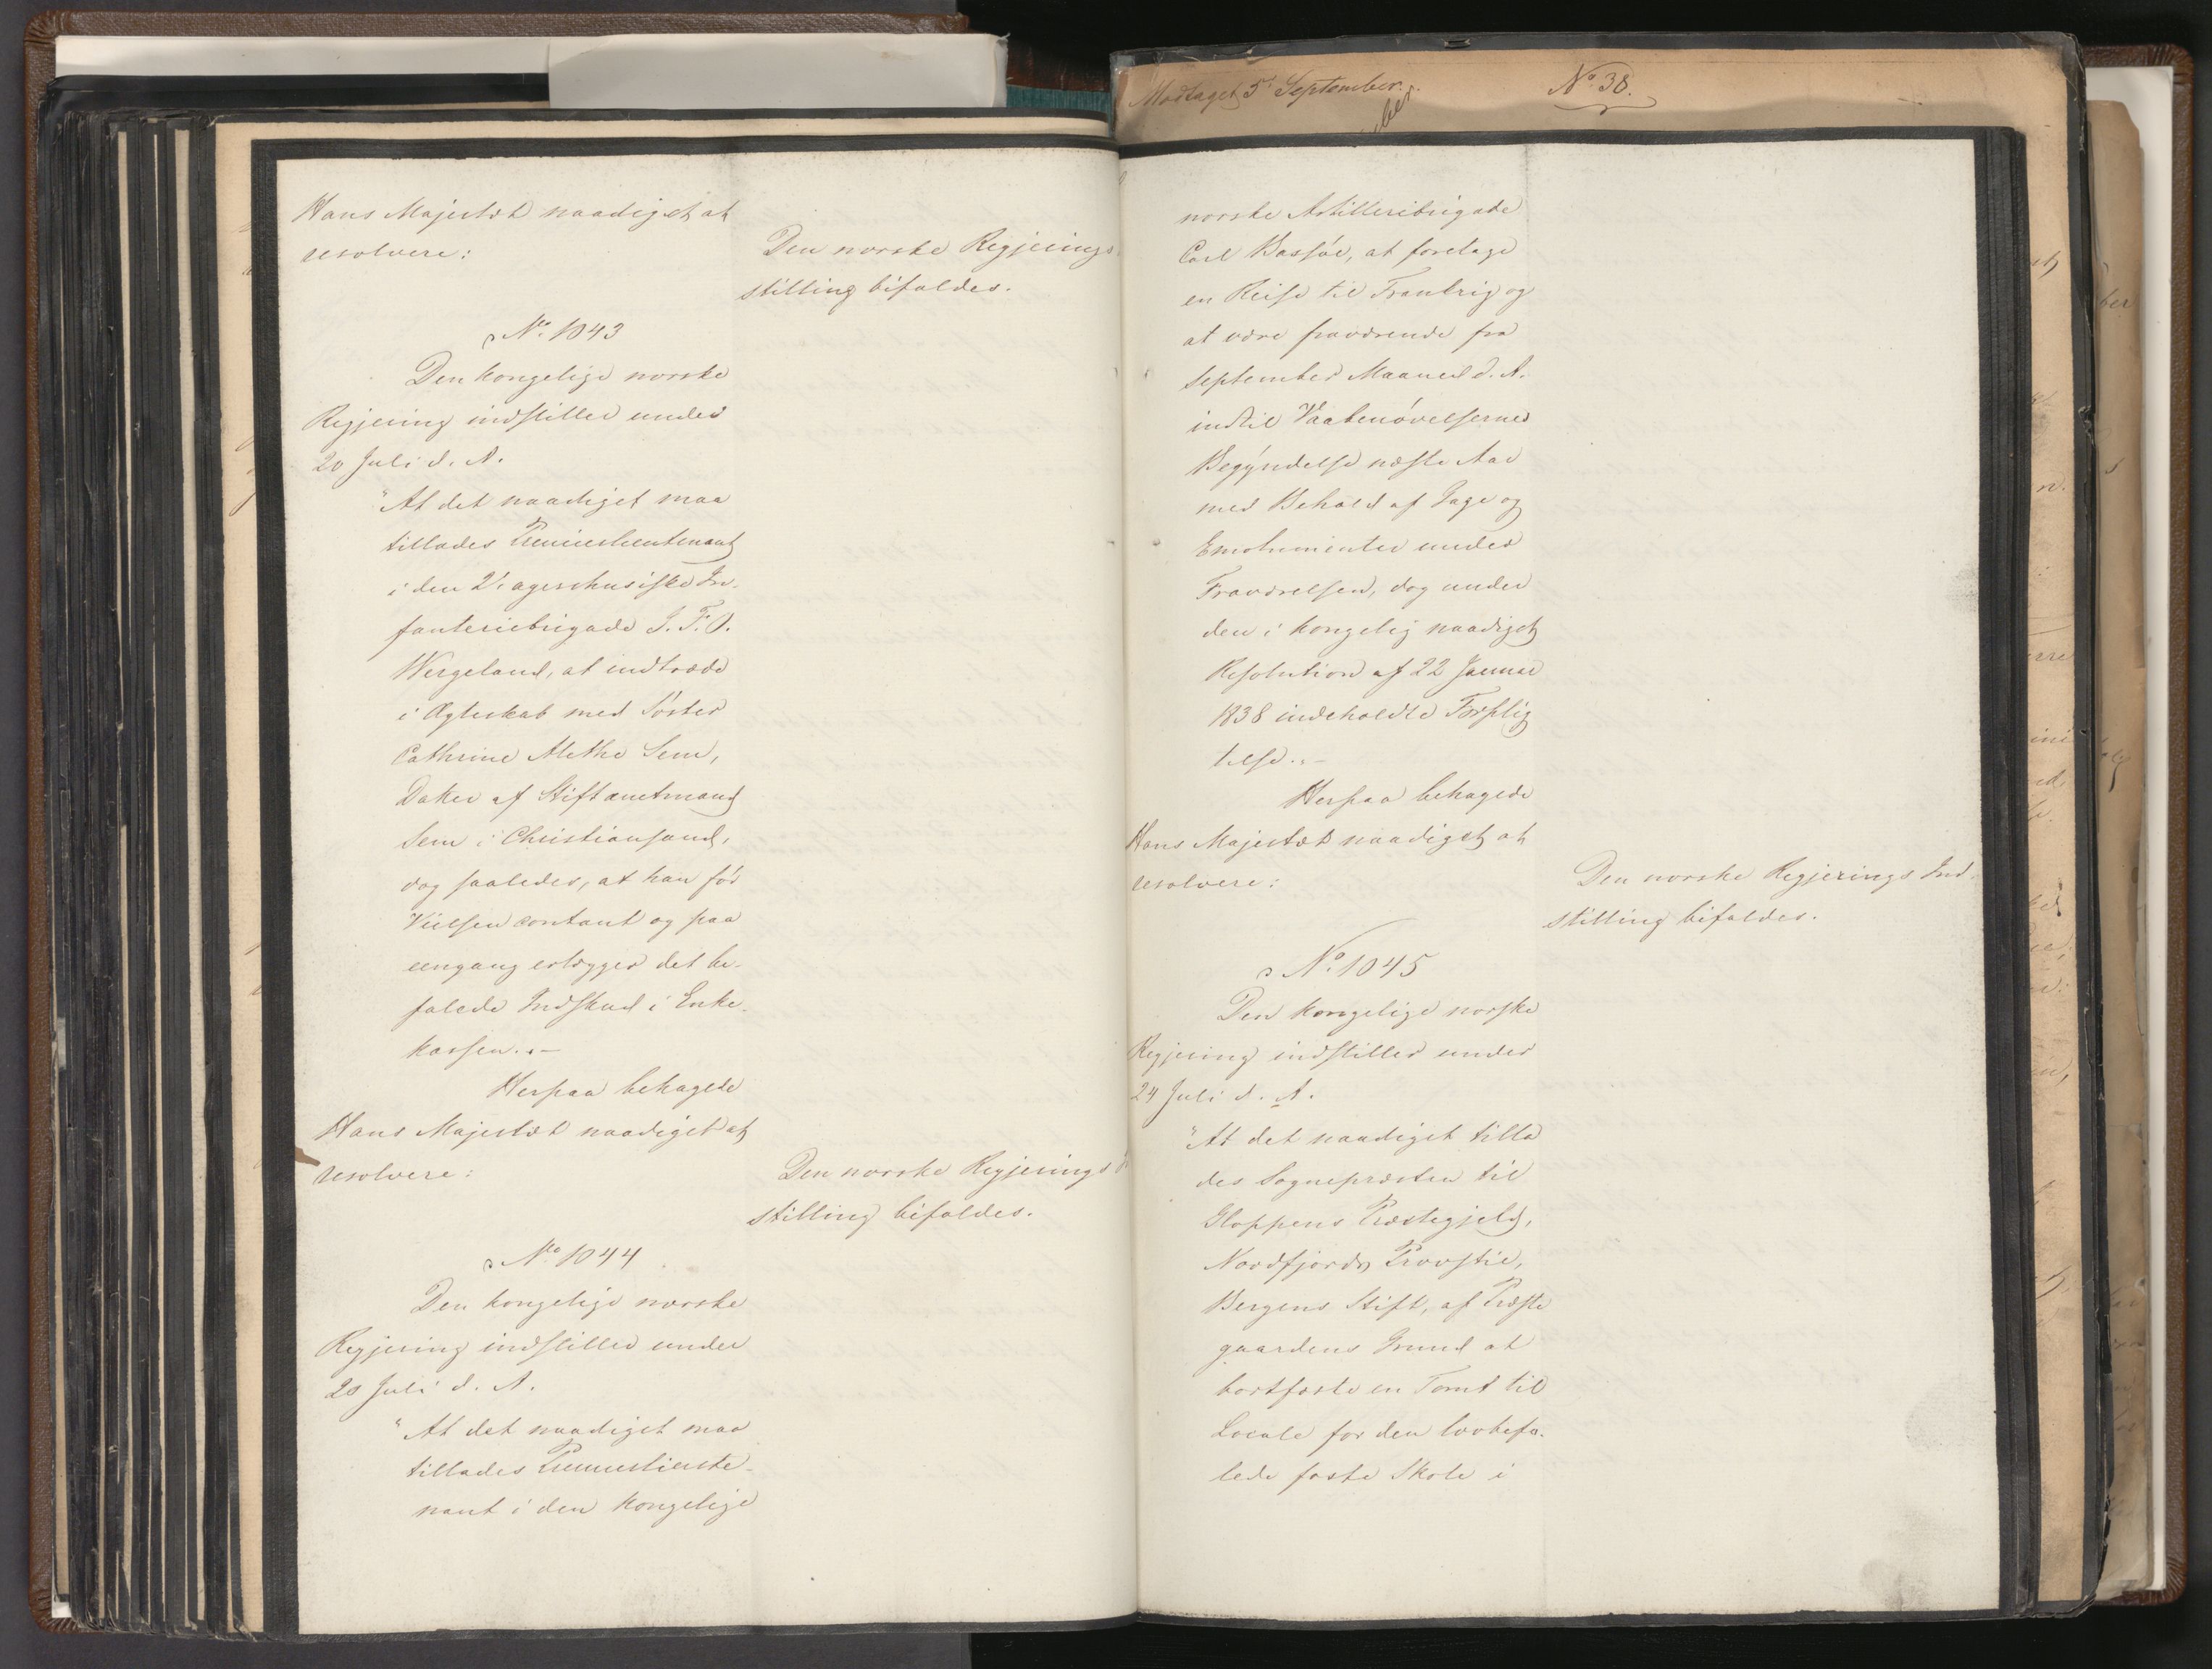 Hans Majestæt naadigst at
resolvere:
Den norske Regjerings
stilling bifaldes.
No. 1043
Den kongelige norske
Regjering indstiller under
20 Juli d. A.
"At det naadigst maa
tillades Premierlieutenant
i den 2den agershusiske In-
fanteriebrigade J. F. O.
Wergeland, at indtræde
i Ægteskab med Søster
Cathrine Alethe Sem,
Datter af Stiftamtmand
Sem i Christiansand,
dog saaledes, at han før
Vielsen contant og paa
eengang erlægger det be-
falede Indskud i Enke-
kassen."-
Herpaa behagede
Hans Majestæt naadigst at
resolvere:
Den norske Regjerings
stilling bifaldes.
No. 1044
Den kongelige norske
Regjering indstiller under
20 Juli d. A.
"At det naadigst maa
tillades Premierlieute-
nant i den kongelige
Modtaget 5te September.
No. 38.
norske Artilleribrigade
Carl Bassøe, at foretage
en Reise til Frankrig og
at være fraværende fra
September Maaned d. A.
indtil Vaabenøvelsernes
Begyndelse næste Aar
med Behold af Gage og
Emolumenter under
Fraværelsen, dog under
den i kongelig naadigst
Resolution af 22 Januar
1838 indeholdte Forplig
telse."-
Herpaa behagede
Hans Majestæt naadigst at
resolvere:
Den norske Regjerings Ind-
stilling bifaldes.
No. 1045
Den kongelige norske
Regjering indstiller under
24 Juli d. A.
"At det naadigst tilla
des Sognepræsten til
Gloppens Præstegjeld,
Nordfjords Provstie,
Bergens Stift, af Præste
gaardens Grund at
bortfæste en Tomt til
Locale for den lovbefa-
lede faste Skole i